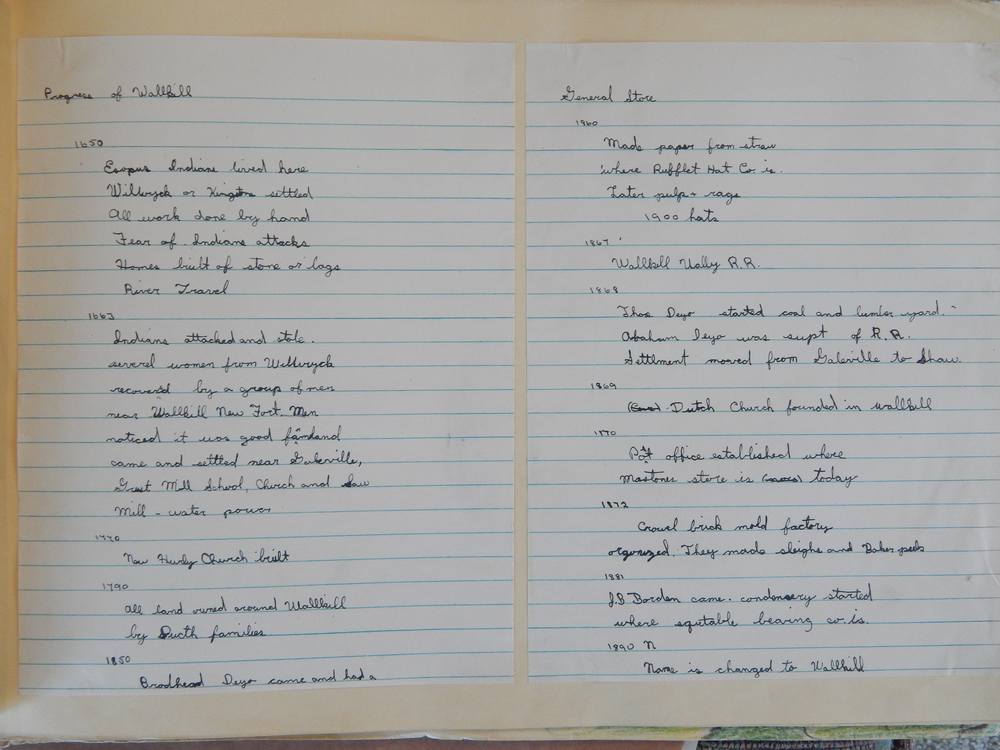 Progress of Wallkill
1650
Esopus Indians lived here
Wiltwyck or Kingston settled
All work done by hand
Fear of Indians attacks
Homes built of stone or logs
River Travel
1663
Indians attacked and stole
several women from Wiltwyck
recovered by a group of men
near Wallkill New Fort. Men
noticed it was good farmland
came and settled near Galeville,
Grist Mill School, Church and Saw
Mill - water power
1770
New Hurly Church built
1790
All land owned around Wallkill
by Ducth families
1850
Brodhead Deyo came and had a
General Store
1860
Made paper from straw
where Rufflet Hat Co is.
Later pulp + rags
1900 hats
1867
Wallkill Vally R.R.
1868
Thos Deyo started coal and lumber yard.
Abraham Deyo was supt of R.R.
Settlment moved from Galeville to Shaw.
1869
Dutch Church founded in Wallkill
1870
Post office established where
Mastones store is today
1872
Crowl brick mold factory
organized. They made sleighs and Baker peels
1881
J.G Borden came. condensery started
where equitable bearing co is.
1890 N
Name is changed to Wallkill